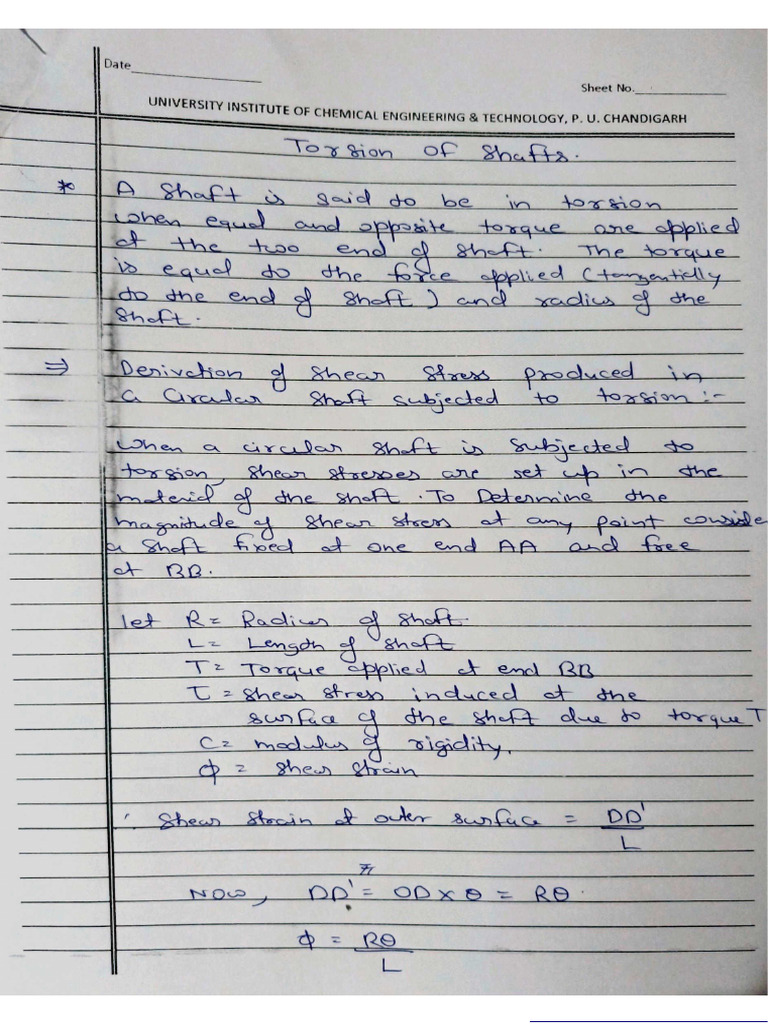 Date
Sheet No.
UNIVERSITY INSTITUTE OF CHEMICAL ENGINEERING & TECHNOLOGY, P. U. CHANDIGARH
Torsion OF Shafts.
* A Shaft is said to be in torsion
when equal and opposite torque are applied
at the two end of shaft. The torque
is equal to the force applied (tangentially
to the end of shaft) and radius of the
shaft.
⇒ Derivation of shear stress produced in
a Circular Shaft subjected to torsion :-
When a circular shaft is subjected to
torsion, shear stresses are set up in the
material of the shaft. To Determine the
magnitude of shear stress at any point conside
a shaft fixed at one end AA and free
at BB.
let R = Radius of shaft.
L = Length of shaft
T = Torque applied at end BB
τ = shear stress induced at the
surface of the shaft due to torque T
C = modulus of rigidity.
ϕ = shear strain
∴ Shear Strain at outer surface = DD'/L
Now, DD' = OD × θ = Rθ.
ϕ = Rθ/L